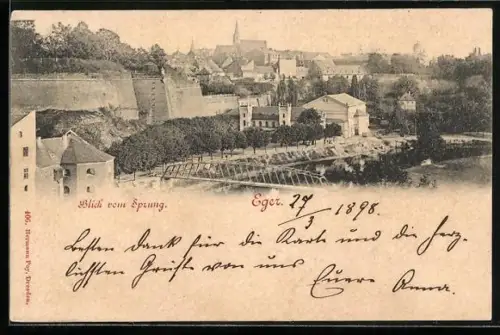 Blick vom Sprung.
Eger. 27/3 1898.
Besten Dank für die Karte und die herz-
lichsten Grüsse von uns Euere
Anna.
406. Hermann Poy, Dresden.